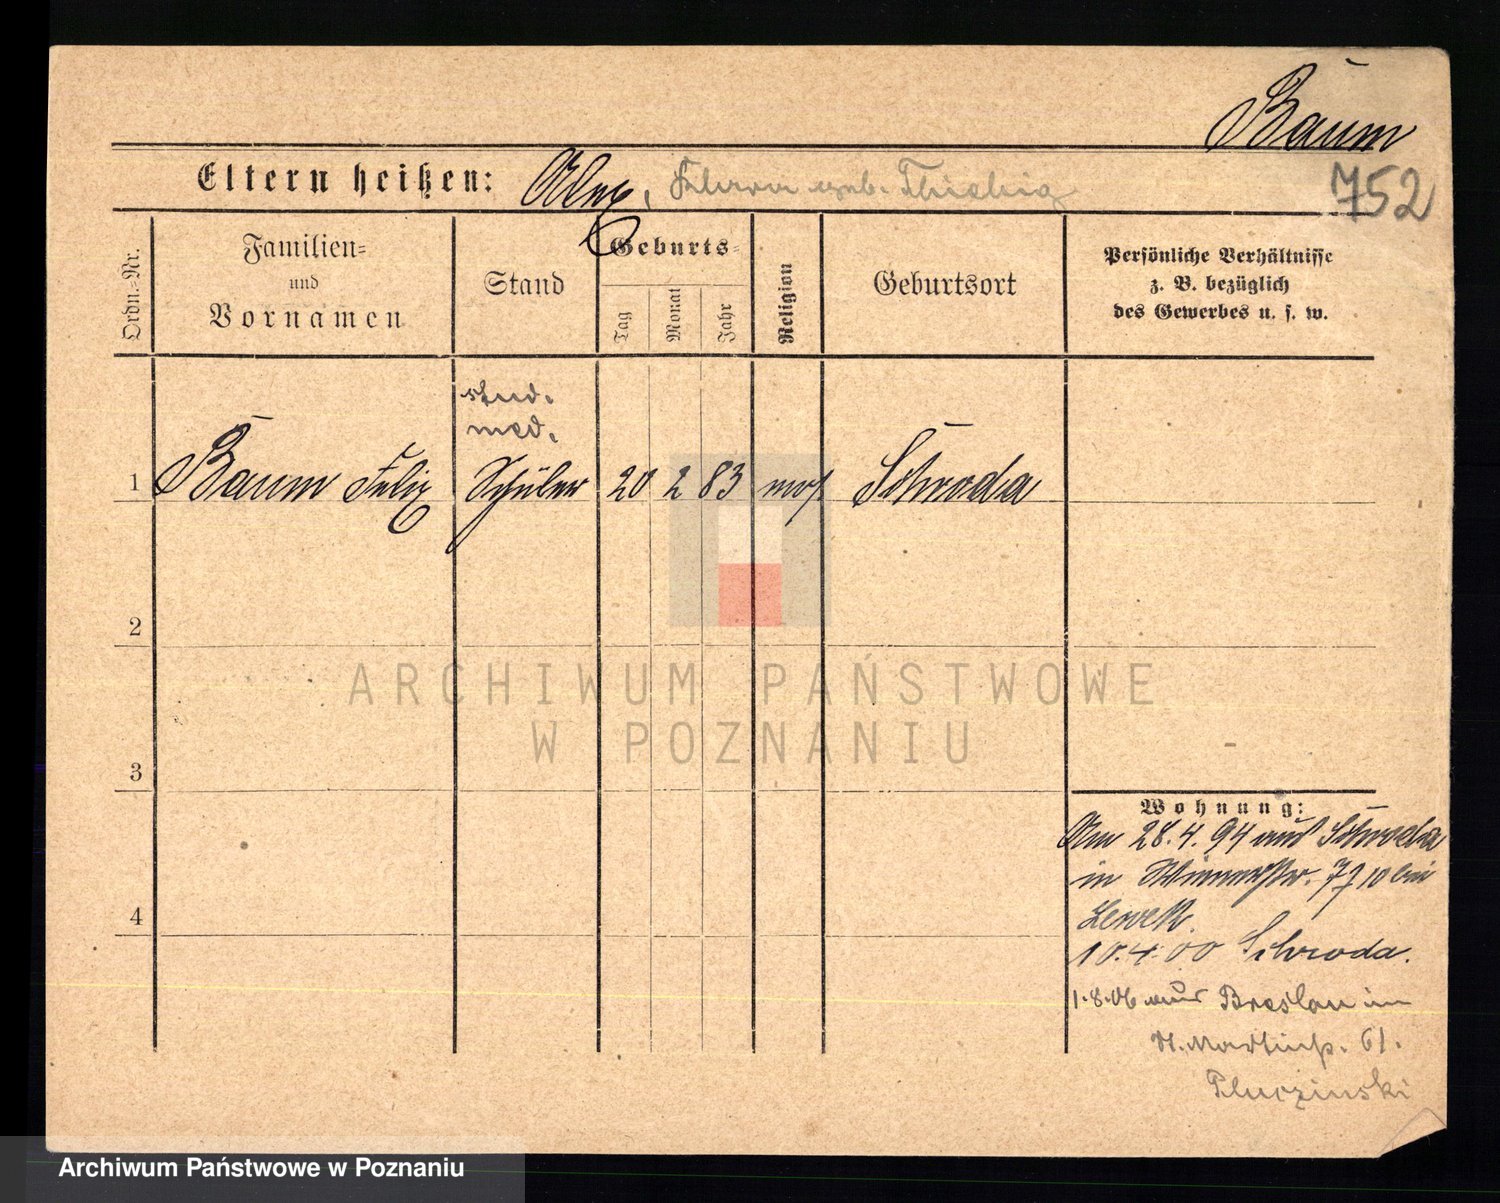 Baum
752
Eltern heißen: Alex, Flora geb. Thiehig
Ordn.-Nr.
Familien-
und
Vornamen
Stand
Geburts-
Tag
Monat
Jahr
Religion
Geburtsort
Persönliche Verhältnisse
z. B. bezüglich
des Gewerbes u. s. w.
stud.
med.
1 Baum Felix Schüler 20 2 83 mos Schroda
2
3
4
ARCHIWUM PAŃSTWOWE
W POZNANIU
Wohnung:
Am 28.4.94 aus Schroda
in 10 bei
10.4.00 Schroda.
1.8.06 aus Breslau in
St. Martinstr. 61.
Pluczinski
Archiwum Państwowe w Poznaniu